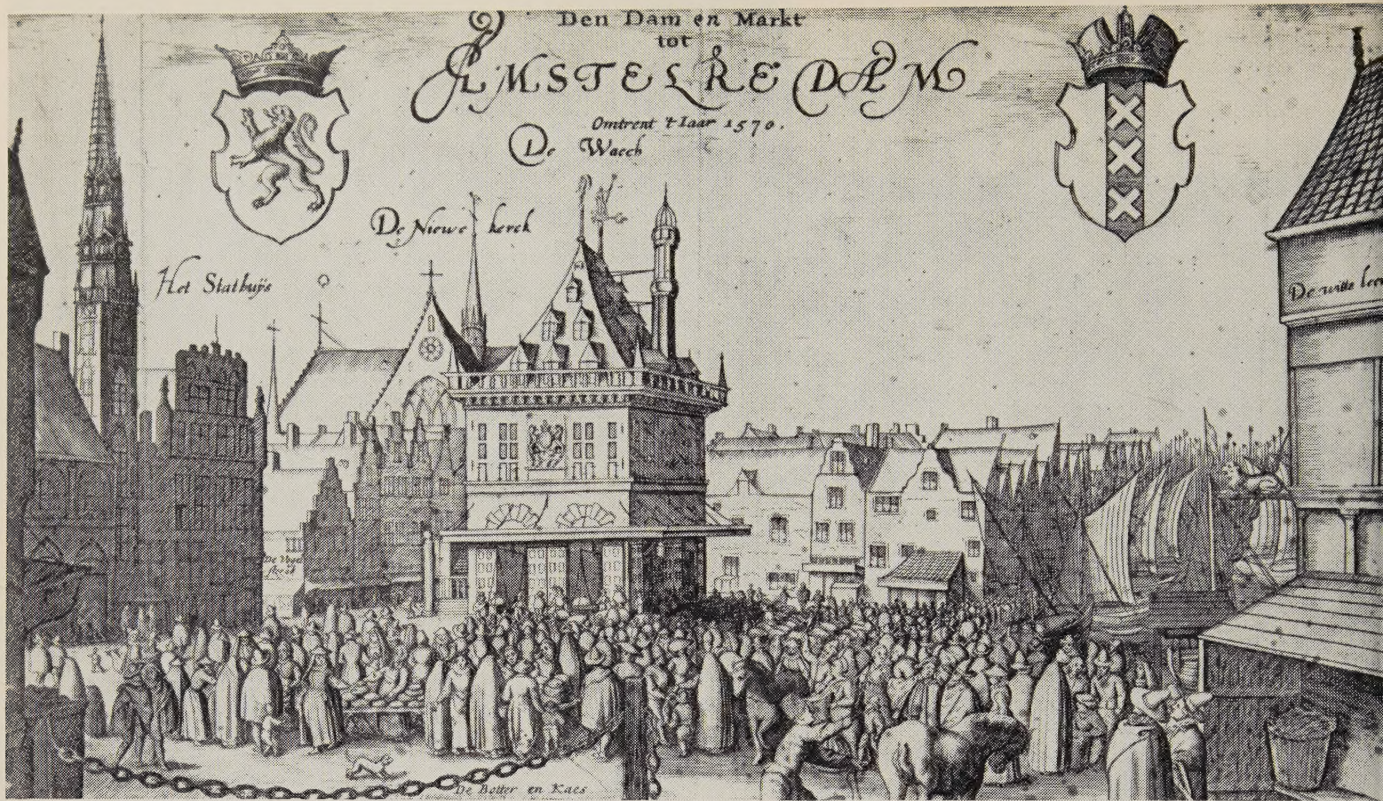 Den Dam en Markt
tot
AMSTELREDAM
Omtrent 't Iaar 1570.
De Waech
De Niewe kerck
Het Stathuÿs
De witte
De Botter en Kaes